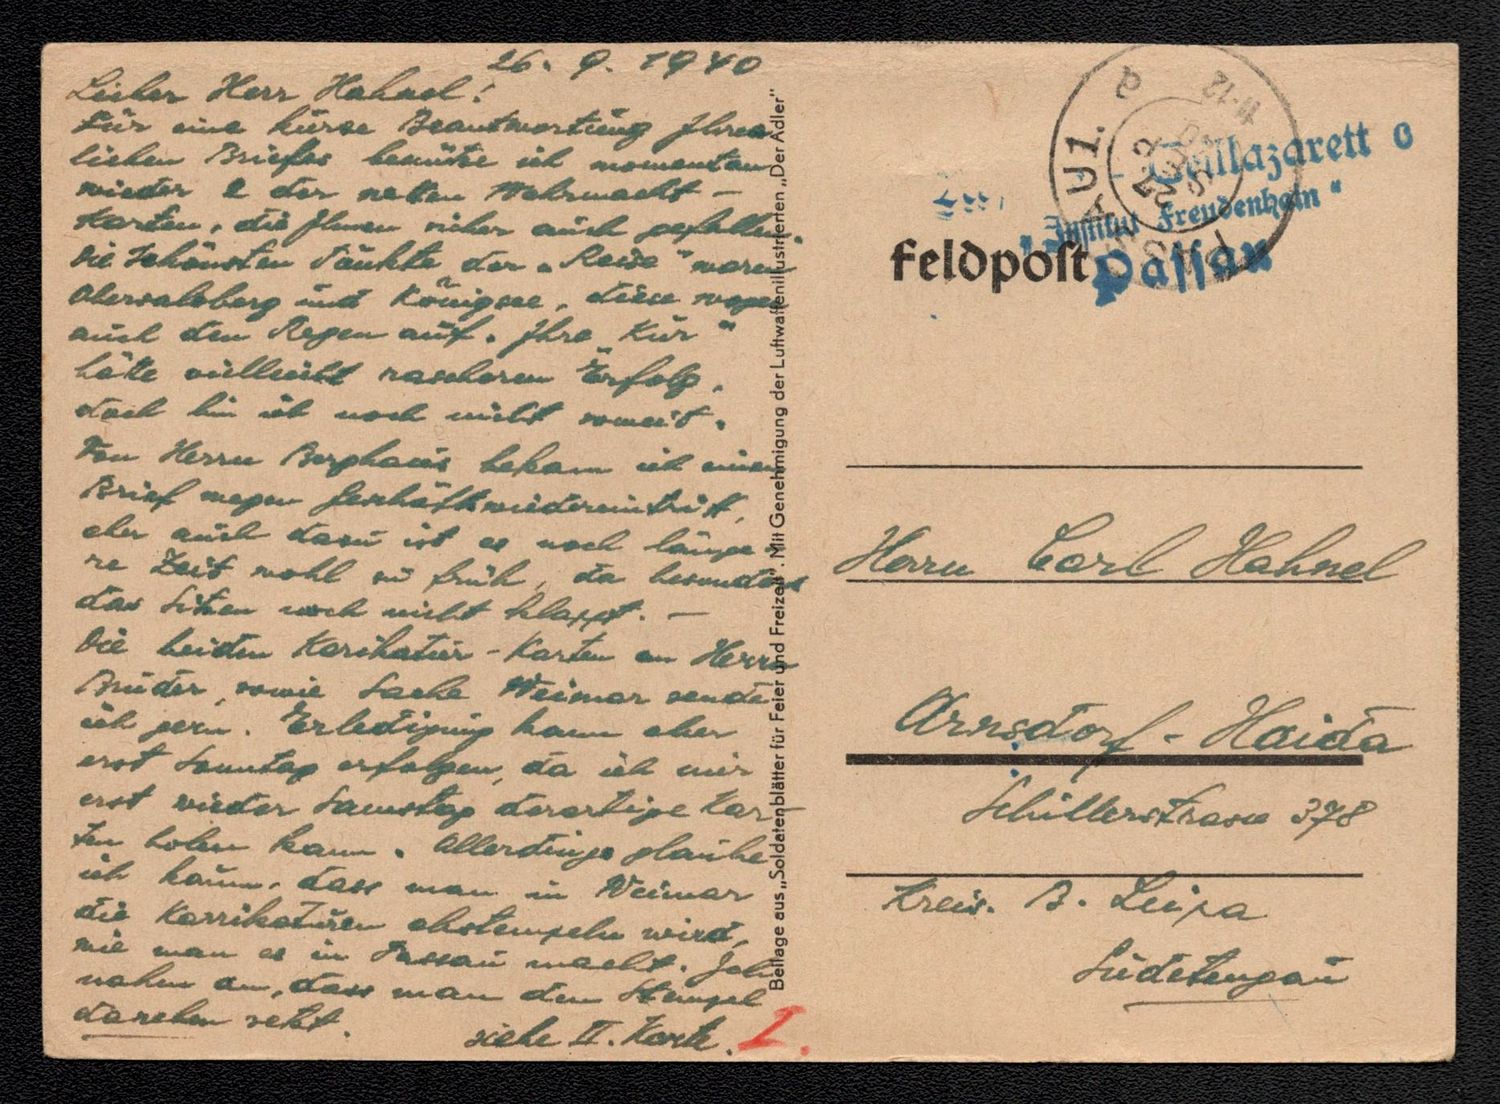 26. 9. 1940
Lieber Herr Hahnel!
Für eine kurze Beantwortung Ihres
lieben Briefes benütze ich momentan
wieder 2 der netten Wehrmacht-
karten, die Ihnen sicher auch gefallen.
Die schönsten Punkte der "Reise" waren
Obersalzberg und Königsee, diese wogen
auch den Regen auf. Ihre "Kur"
hätte vielleicht rascheren Erfolg,
doch bin ich noch nicht soweit.
Von Herrn Berghaus bekam ich einen
Brief wegen Geschäftswiedereintritt,
aber auch dazu ist es noch länge-
re Zeit wohl zu früh, da besonders
das Sitzen noch nicht klappt. —
Die beiden Karikatur-Karten an Herrn
Bruder, sowie Sache Weimar sende
ich gern. Erledigung kann aber
erst Sonntag erfolgen, da ich mir
erst wieder Samstag derartige Kar-
ten holen kann. Allerdings glaube
ich kaum, dass man in Weimar
die Karrikaturen abstempeln wird,
wie man es in Passau macht. Ich
nahm an, dass man den Stempel
daneben setzt.
siehe II. Karte.
I.
Beilage aus „Soldatenblätter für Feier und Freizeit“. Mit Genehmigung der Luftwaffenillustrierten „Der Adler“
PASSAU 1.
Teillazarett
"Institut Freudenhain"
Passau
Feldpost
Herrn Carl Hahnel
Arnsdorf-Haida
Schillerstrasse 378
Kreis. B. Leipa
Sudetengau